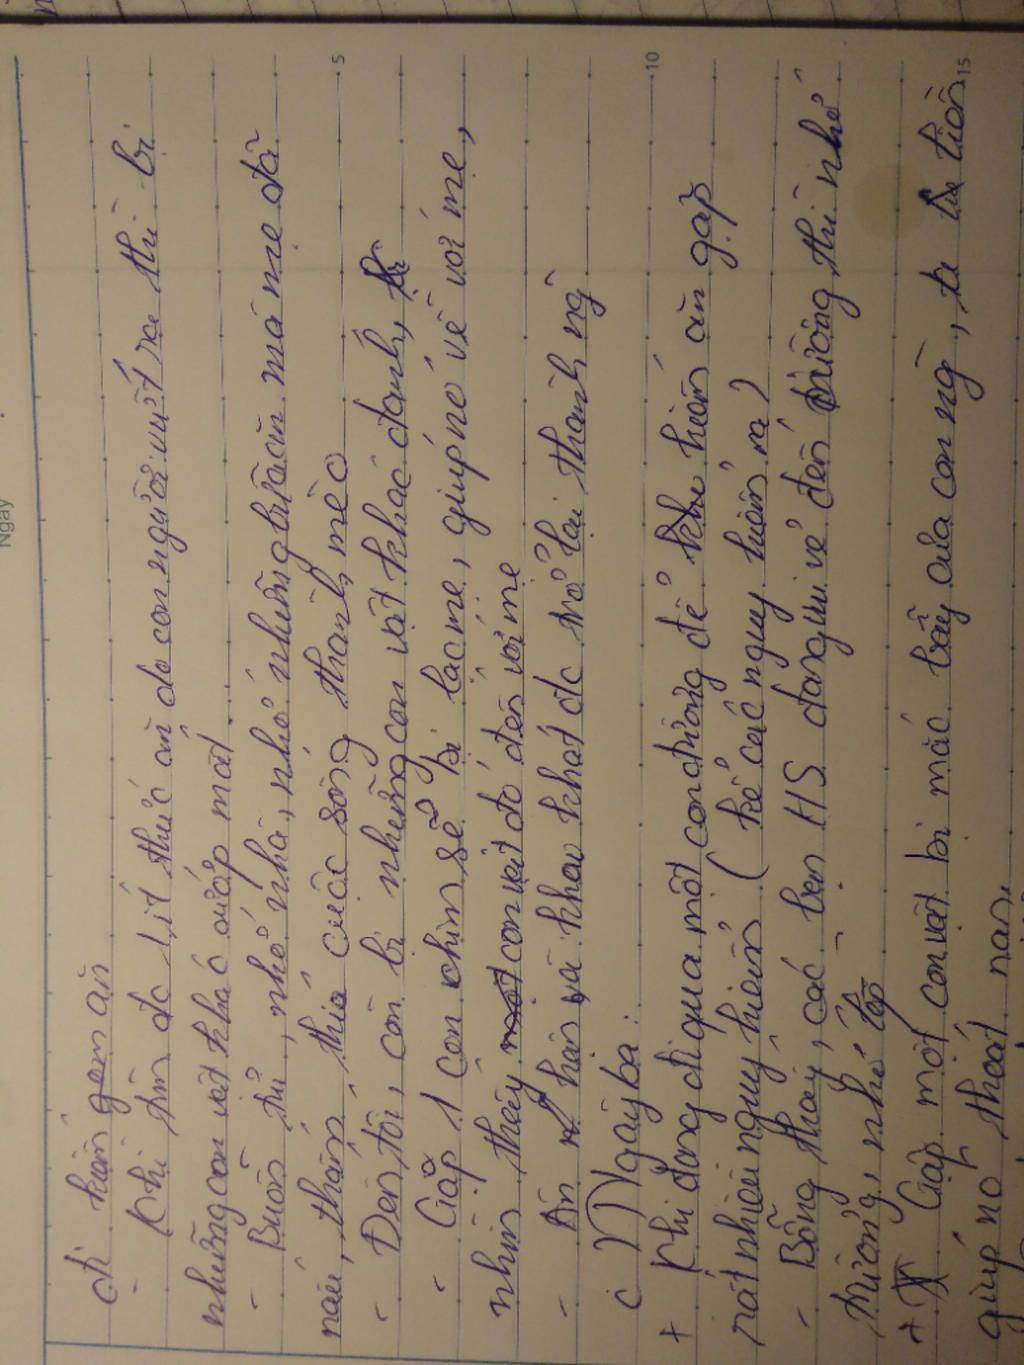 Ngày
đi kiếm gom ăn
- Khi tìm đc 1 ít thức ăn do con người vứt ra thì bị
những con vật khác cướp mất...
- Buồn tủi, nhớ nhà, nhớ những bữa ăn mà mẹ đã
nấu, thấm thía cuộc sống thành mèo
- Đến tối, còn bị những con vật khác đánh,
- Gặp 1 con chim sẻ bị lạc mẹ, giúp nó về với mẹ,
nhìn thấy một con vật đó đến với mẹ
- Ân hận và khao khát đc trở lại thành ng
c) Ngày ba:
+ Khi đang đi qua một con đường để kiếm ăn gặp
rất nhiều nguy hiểm (kể các nguy hiểm ra)
- Bỗng thấy các bạn HS đang vui vẻ đến trường thì nhớ
trường, nhớ lớp
+ Gặp một con vật bị mắc bẫy của con ng,
giúp nó thoát nạn,
5
10
15